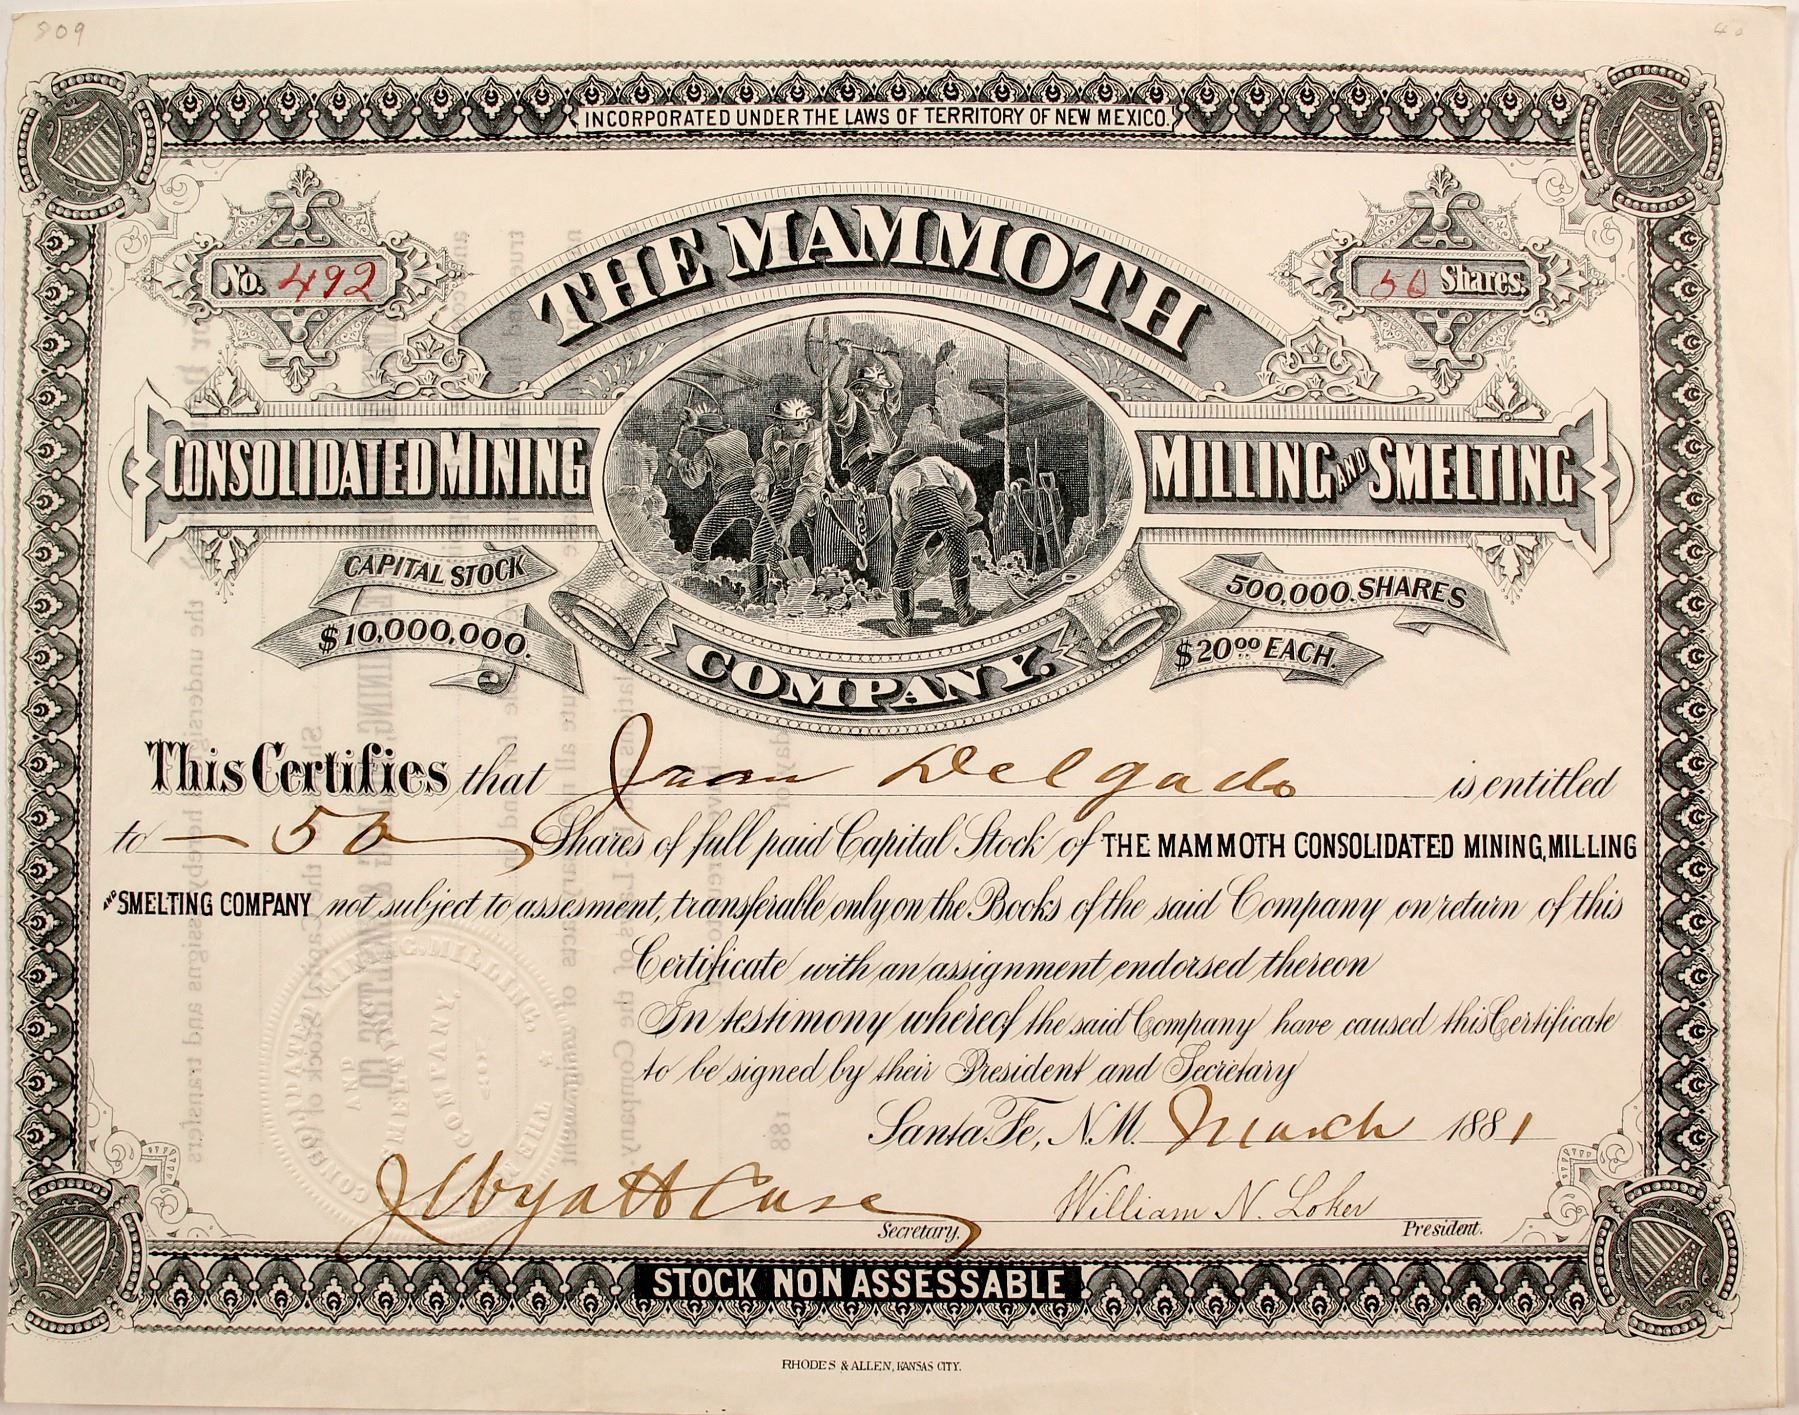 809
40
INCORPORATED UNDER THE LAWS OF TERRITORY OF NEW MEXICO.
No. 492
50 Shares.
THE MAMMOTH
CONSOLIDATED MINING
MILLING AND SMELTING
COMPANY.
CAPITAL STOCK
$10,000,000.
500,000 SHARES
$20.00 EACH.
This Certifies that Juan Delgado is entitled
to — 50 — Shares of full paid Capital Stock of THE MAMMOTH CONSOLIDATED MINING, MILLING
AND SMELTING COMPANY not subject to assesment, transferable only on the Books of the said Company on return of this
Certificate with an assignment endorsed thereon
In testimony whereof the said Company have caused this Certificate
to be signed by their President and Secretary
Santa Fe, N.M. March 1881
J Wyatt Case
Secretary.
William N. Loker
President.
STOCK NON ASSESSABLE
RHODES & ALLEN, KANSAS CITY.